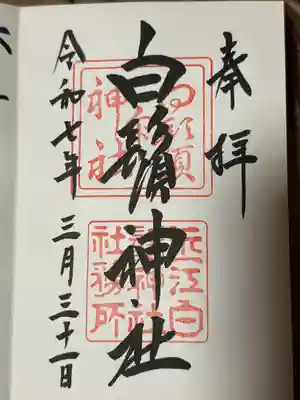 奉拝
白鬚神社
令和七年 三月三十一日
近江白
鬚神社
社務所